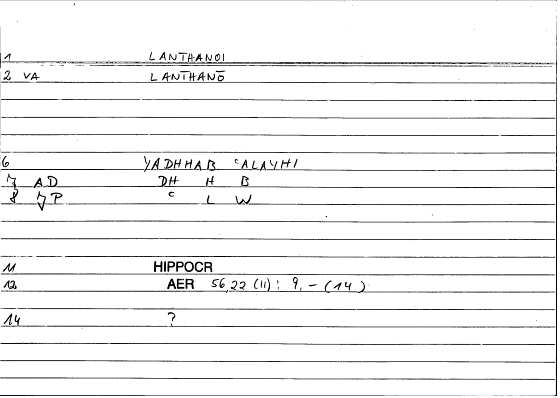 1 LANTHANOI
2 VA LANTHANŌ
6 YADHHAB ʿALAYHI
7 AD DH H B
8 JP ʿ L W
11 HIPPOCR
12 AER 56,22 (11) : 9, - (14)
14 ?